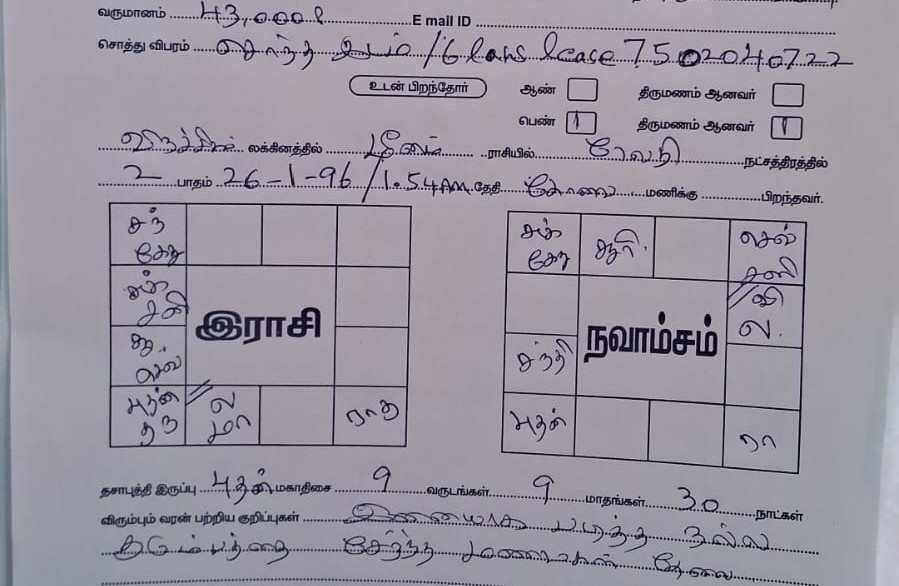 வருமானம் 43,000/- E mail ID
சொத்து விபரம் சொந்த இடம் / lease 7502040722
உடன் பிறந்தோர் ஆண் திருமணம் ஆனவர்
பெண் 1 திருமணம் ஆனவர் 1
விருச்சிகம் லக்கினத்தில் மீனம் ராசியில் ரேவதி நட்சத்திரத்தில்
2 பாதம் 26-1-96 / 1.54AM தேதி காலை மணிக்கு பிறந்தவர்.
சந்
கேது
சுக்
சனி
சூ.
செவ்
புதன்
குரு
ல
மா
ராகு
இராசி
சுக்
கேது
சூரி.
செவ்
சனி
கு
ல.
சந்தி
புதன்
ரா
நவாம்சம்
தசாபுத்தி இருப்பு புதன் மகாதிசை 9 வருடங்கள் 9 மாதங்கள் 30 நாட்கள்
விரும்பும் வரன் பற்றிய குறிப்புகள் இணையாக படித்த நல்ல
குடும்பத்தை சேர்ந்த மணமகன் தேவை